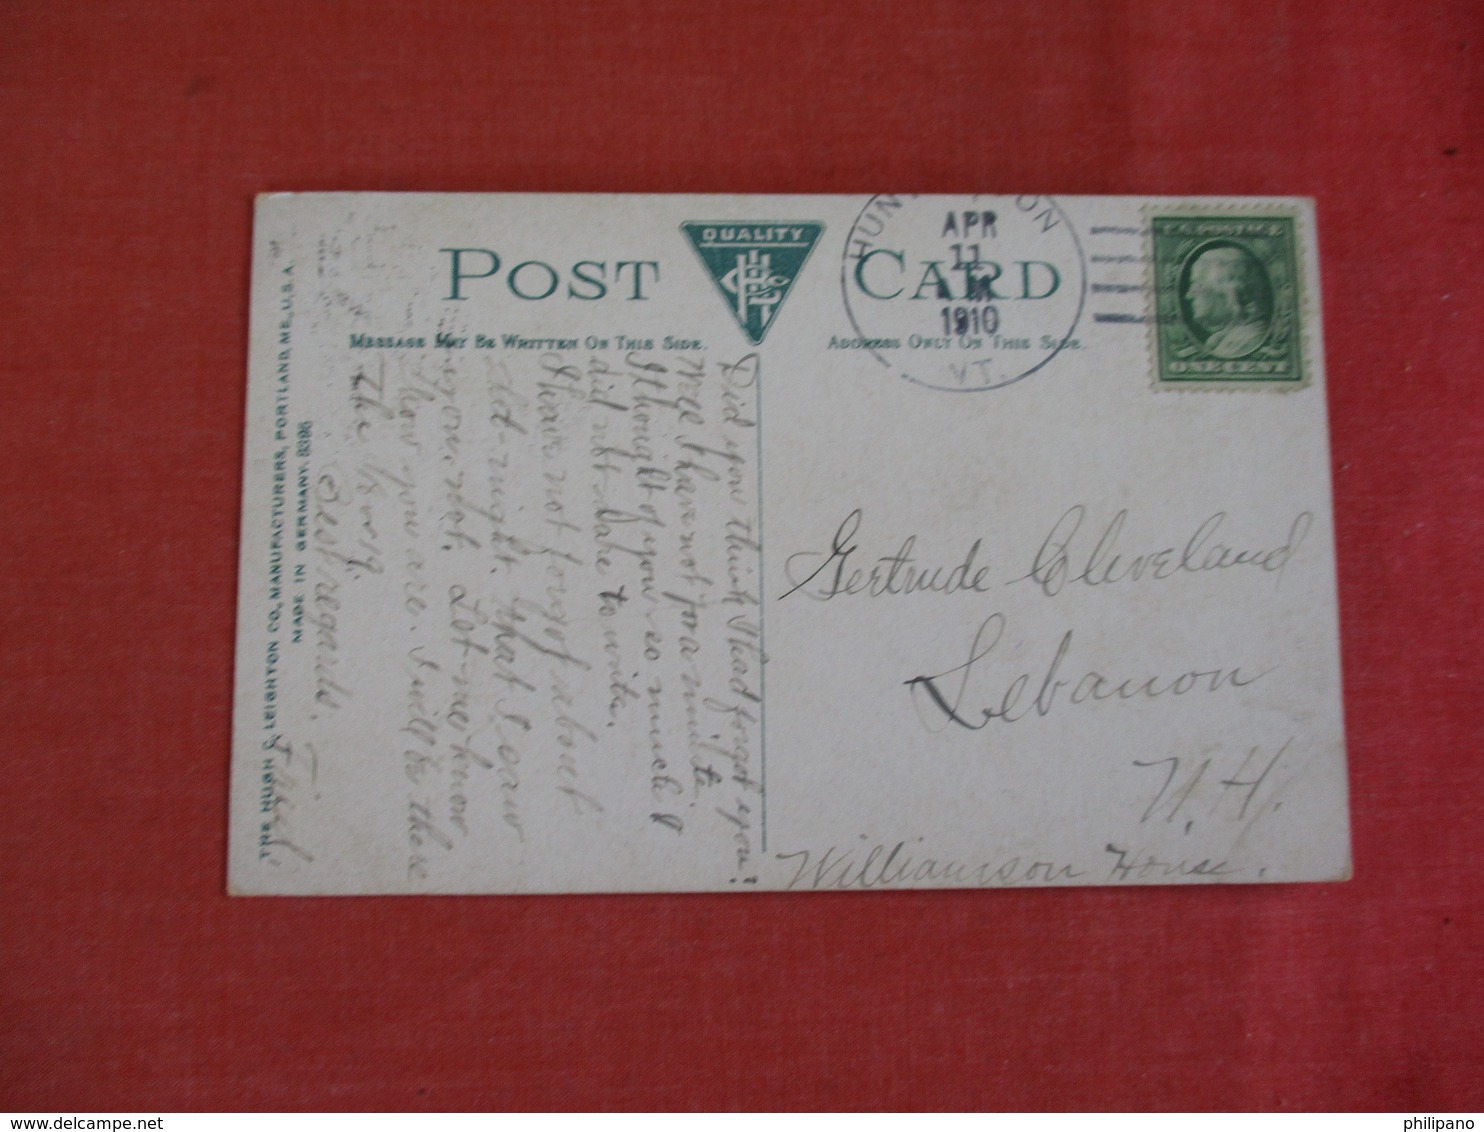 POST CARD
QUALITY
MESSAGE MAY BE WRITTEN ON THIS SIDE.
ADDRESS ONLY ON THIS SIDE.
APR
11
1910
VT.
U.S. POSTAGE
ONE CENT
THE HUGH C. LEIGHTON CO., MANUFACTURERS, PORTLAND, ME., U.S.A.
MADE IN GERMANY. 8396
Did you think I had forgot you?
Well I have not for a minute.
I thought of you so much I
did not dare to write.
I have not forgot about
that I saw
in your lot. Let me know
how you are. I will be there
Best regards.
Gertrude Cleveland
Lebanon
N.H.
Williamson House.
delcampe.net
philipano